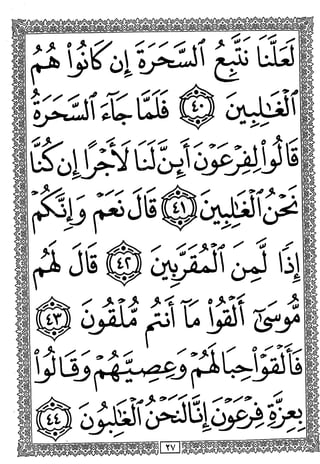 لَعَلَّنَا نَتَّبِعُ ٱلسَّحَرَةَ إِن كَانُوا۟ هُمُ
ٱلْغَـٰلِبِينَ ٤٠ فَلَمَّا جَآءَ ٱلسَّحَرَةُ
قَالُوا۟ لِفِرْعَوْنَ أَئِنَّ لَنَا لَأَجْرًا إِن كُنَّا
نَحْنُ ٱلْغَـٰلِبِينَ ٤١ قَالَ نَعَمْ وَإِنَّكُمْ
إِذًا لَّمِنَ ٱلْمُقَرَّبِينَ ٤٢ قَالَ لَهُم
مُّوسَىٰٓ أَلْقُوا۟ مَآ أَنتُم مُّلْقُونَ ٤٣
فَأَلْقَوْا۟ حِبَالَهُمْ وَعِصِيَّهُمْ وَقَالُوا۟
بِعِزَّةِ فِرْعَوْنَ إِنَّا لَنَحْنُ ٱلْغَـٰلِبُونَ ٤٤
٢٧